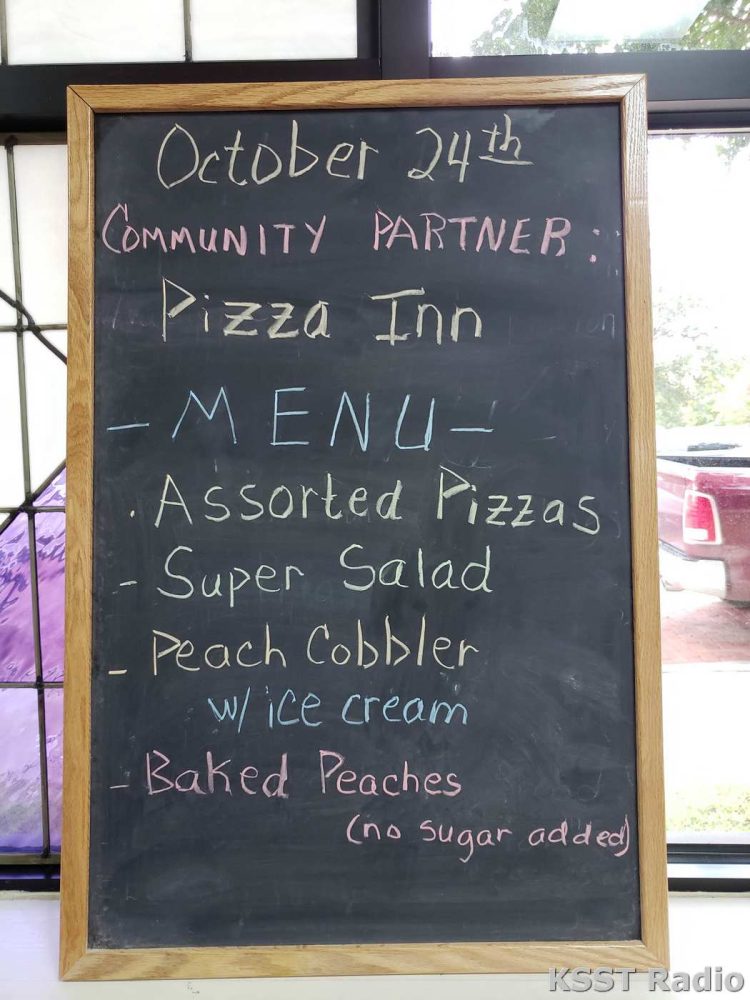 October 24th
COMMUNITY PARTNER:
Pizza Inn
- MENU -
. Assorted Pizzas
- Super Salad
- Peach Cobbler
w/ ice cream
- Baked Peaches
(no sugar added)
KSST Radio